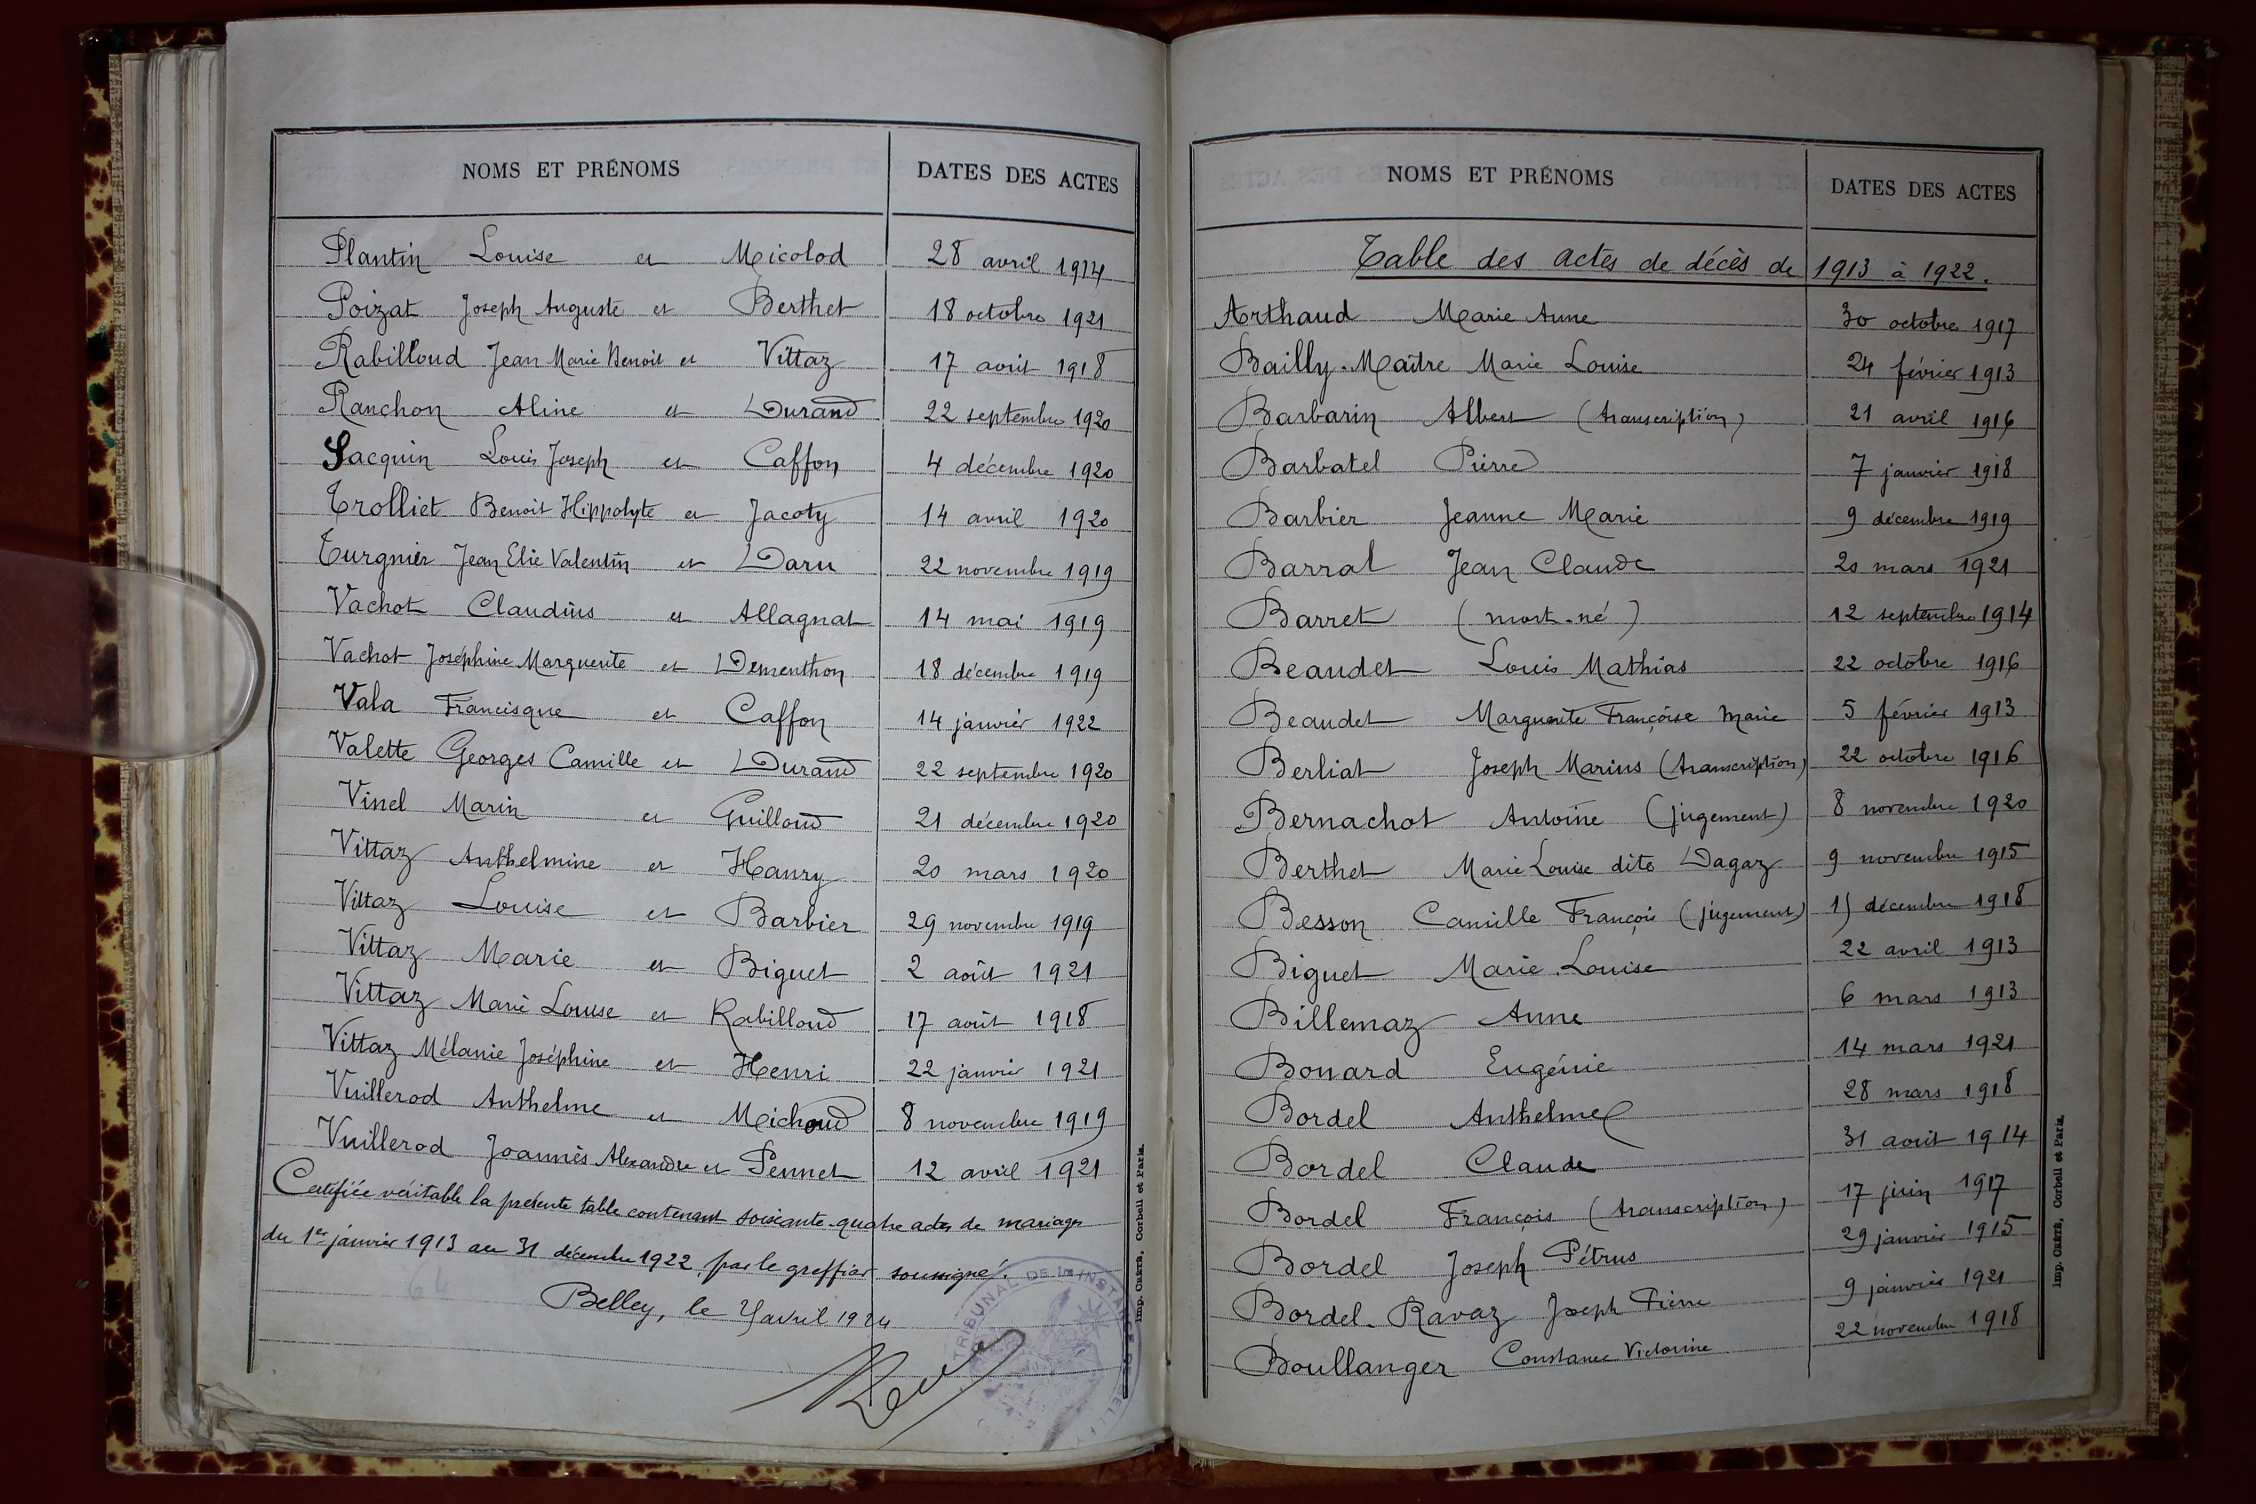 NOMS ET PRÉNOMS DATES DES ACTES
Plantin Louise et Micolod 28 avril 1914
Poizat Joseph Auguste et Berthet 18 octobre 1921
Rabilloud Jean Marie Benoit et Vittaz 17 août 1918
Ranchon Aline et Durand 22 septembre 1920
Sacquin Louis Joseph et Caffon 4 décembre 1920
Trolliet Benoit Hippolyte et Jacoty 14 avril 1920
Turgnier Jean Elie Valentin et Daru 22 novembre 1919
Vachot Claudius et Allagnat 14 mai 1919
Vachot Joséphine Marguerite et Dementhon 18 décembre 1919
Vala Francisque et Caffon 14 janvier 1922
Valette Georges Camille et Durand 22 septembre 1920
Vinel Marin et Guilloud 21 décembre 1920
Vittaz Anthelmine et Hanry 20 mars 1920
Vittaz Louise et Barbier 29 novembre 1919
Vittaz Marie et Biguet 2 août 1921
Vittaz Marie Louise et Rabilloud 17 août 1918
Vittaz Mélanie Joséphine et Henri 22 janvier 1921
Vuillerod Anthelme et Michoud 8 novembre 1919
Vuillerod Joannès Alexandre et Pennet 12 avril 1921
Certifiée véritable la présente table contenant soixante-quatre actes de mariages
du 1er janvier 1913 au 31 décembre 1922, par le greffier soussigné.
Belley, le avril 1924
64
TRIBUNAL DE 1re INSTANCE DE BELLEY
Imp. Oberth, Corbeil et Paris.
NOMS ET PRÉNOMS DATES DES ACTES
Table des actes de décès de 1913 à 1922.
Arthaud Marie Anne 30 octobre 1917
Bailly-Maître Marie Louise 24 février 1913
Barbarin Albert (transcription) 21 avril 1916
Barbatel Pierre 7 janvier 1918
Barbier Jeanne Marie 9 décembre 1919
Barral Jean Claude 20 mars 1921
Barret (mort-né) 12 septembre 1914
Beaudet Louis Mathias 22 octobre 1916
Beaudet Marguerite Françoise Marie 5 février 1913
Berliat Joseph Marius (transcription) 22 octobre 1916
Bernachot Antoine (jugement) 8 novembre 1920
Berthet Marie Louise dite Dagaz 9 novembre 1915
Besson Camille François (jugement) 15 décembre 1918
Biguet Marie Louise 22 avril 1913
Billemaz Anne 6 mars 1913
Bonard Eugénie 14 mars 1921
Bordel Anthelme 28 mars 1918
Bordel Claude 31 août 1914
Bordel François (transcription) 17 juin 1917
Bordel Joseph Pétrus 29 janvier 1915
Bordel-Ravaz Joseph Pierre 9 janvier 1921
Boullanger Constance Victorine 22 novembre 1918